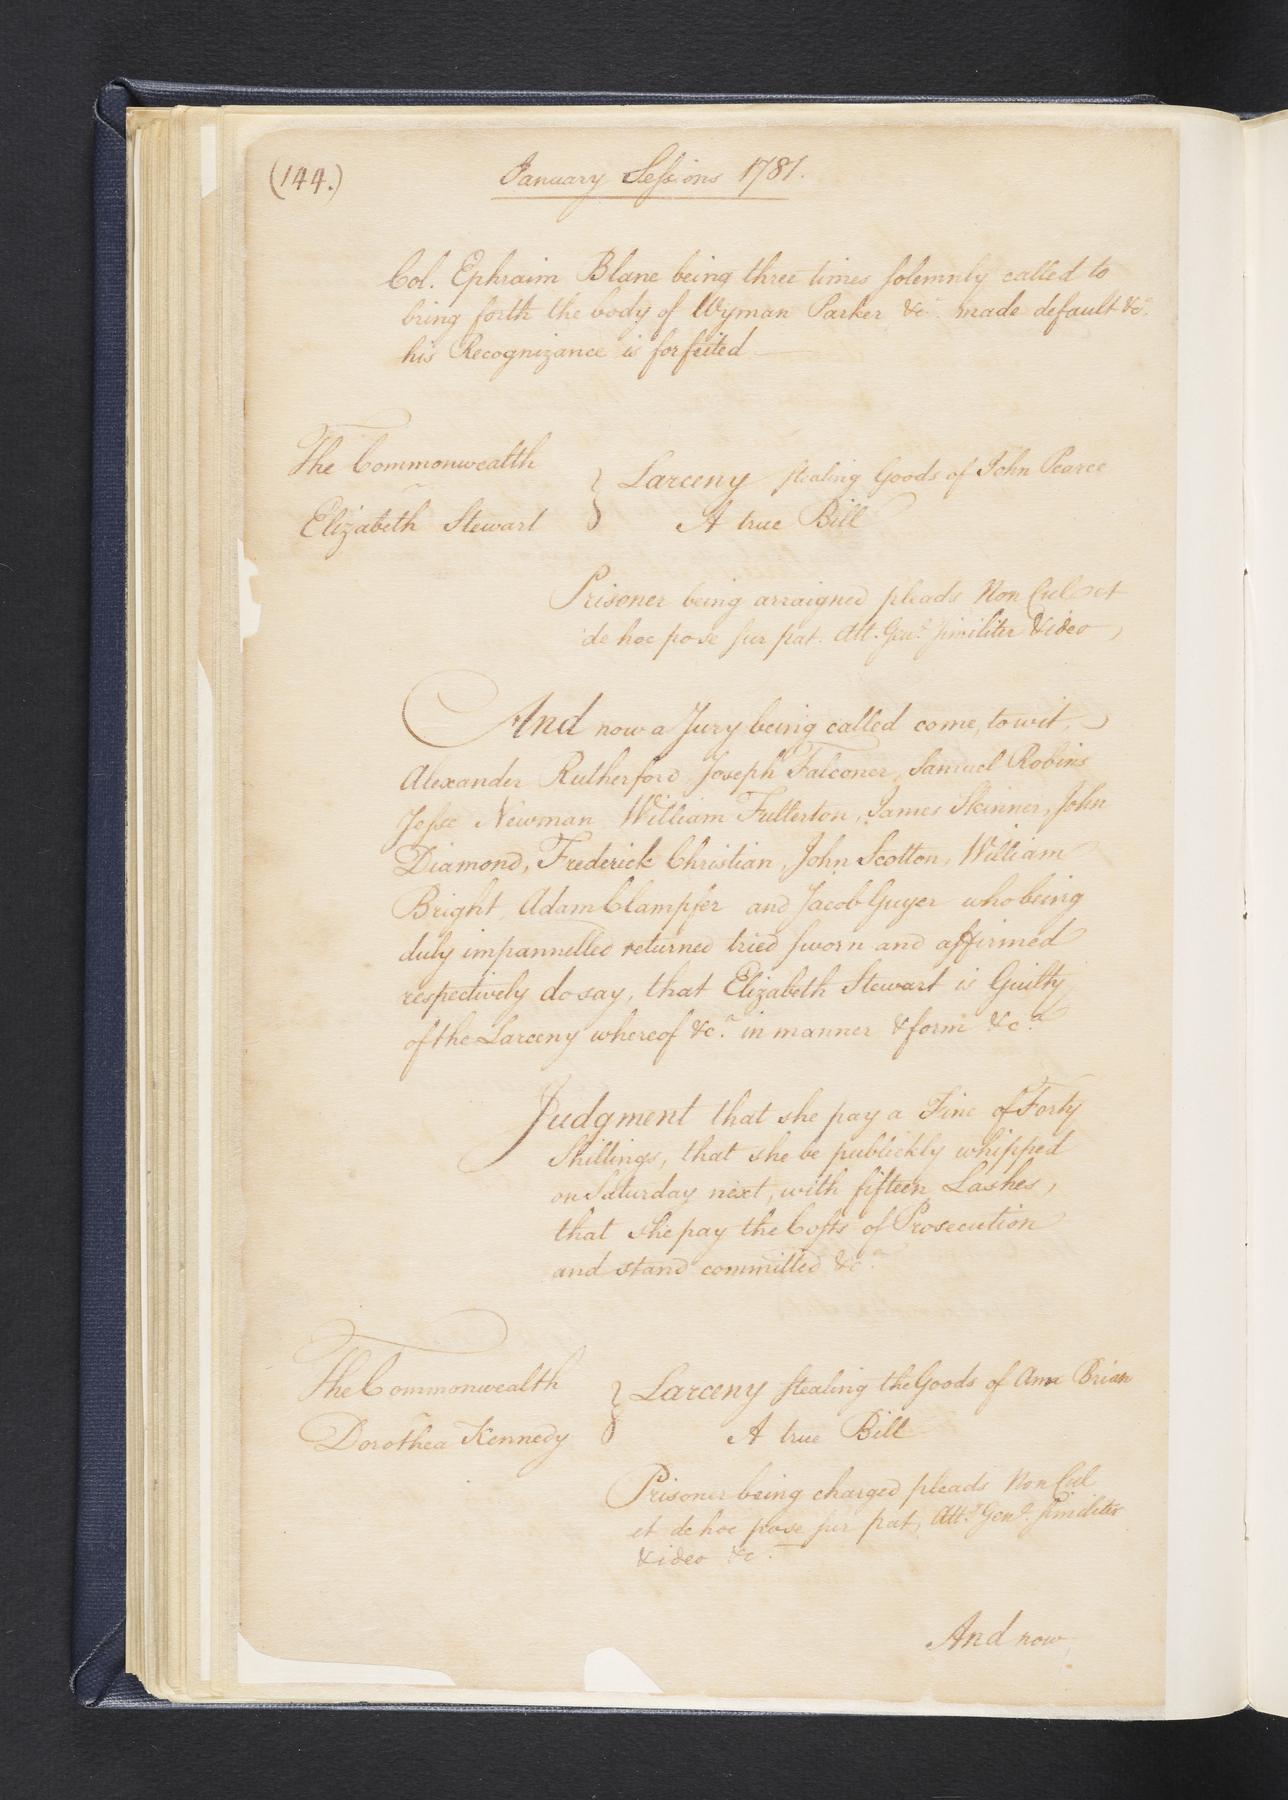 (144.)
January Sessions 1781.
Col. Ephraim Blane being three times solemnly called to
bring forth the body of Wyman Parker &c. made default &c.
his Recognizance is forfeited
The Commonwealth
Elizabeth Stewart
Larceny stealing Goods of John Pearce
A true Bill
Prisoner being arraigned pleads Non Cul et
de hoc pose sur pat. Att. Genl. similiter & ideo
And now a Jury being called come, to wit,
Alexander Rutherford, Joseph Falconer, Samuel Robins
Jesse Newman William Fullerton, James Skinner, John
Diamond, Frederick Christian, John Scotton, William
Bright, Adam Clampfer and Jacob Guyer who being
duly impannelled returned tried sworn and affirmed
respectively do say, that Elizabeth Stewart is Guilty
of the Larceny whereof &c.a in manner & form &c.a
Judgment that she pay a Fine of Forty
Shillings, that she be publickly whipped
on Saturday next, with fifteen Lashes,
that she pay the Costs of Prosecution
and stand committed &c.a
The Commonwealth
Dorothea Kennedy
Larceny stealing the Goods of Ann Brian
A true Bill
Prisoner being charged pleads Non Cul
et de hoc pose sur pat, Att.y Genl. similiter
& ideo &c.
And now,